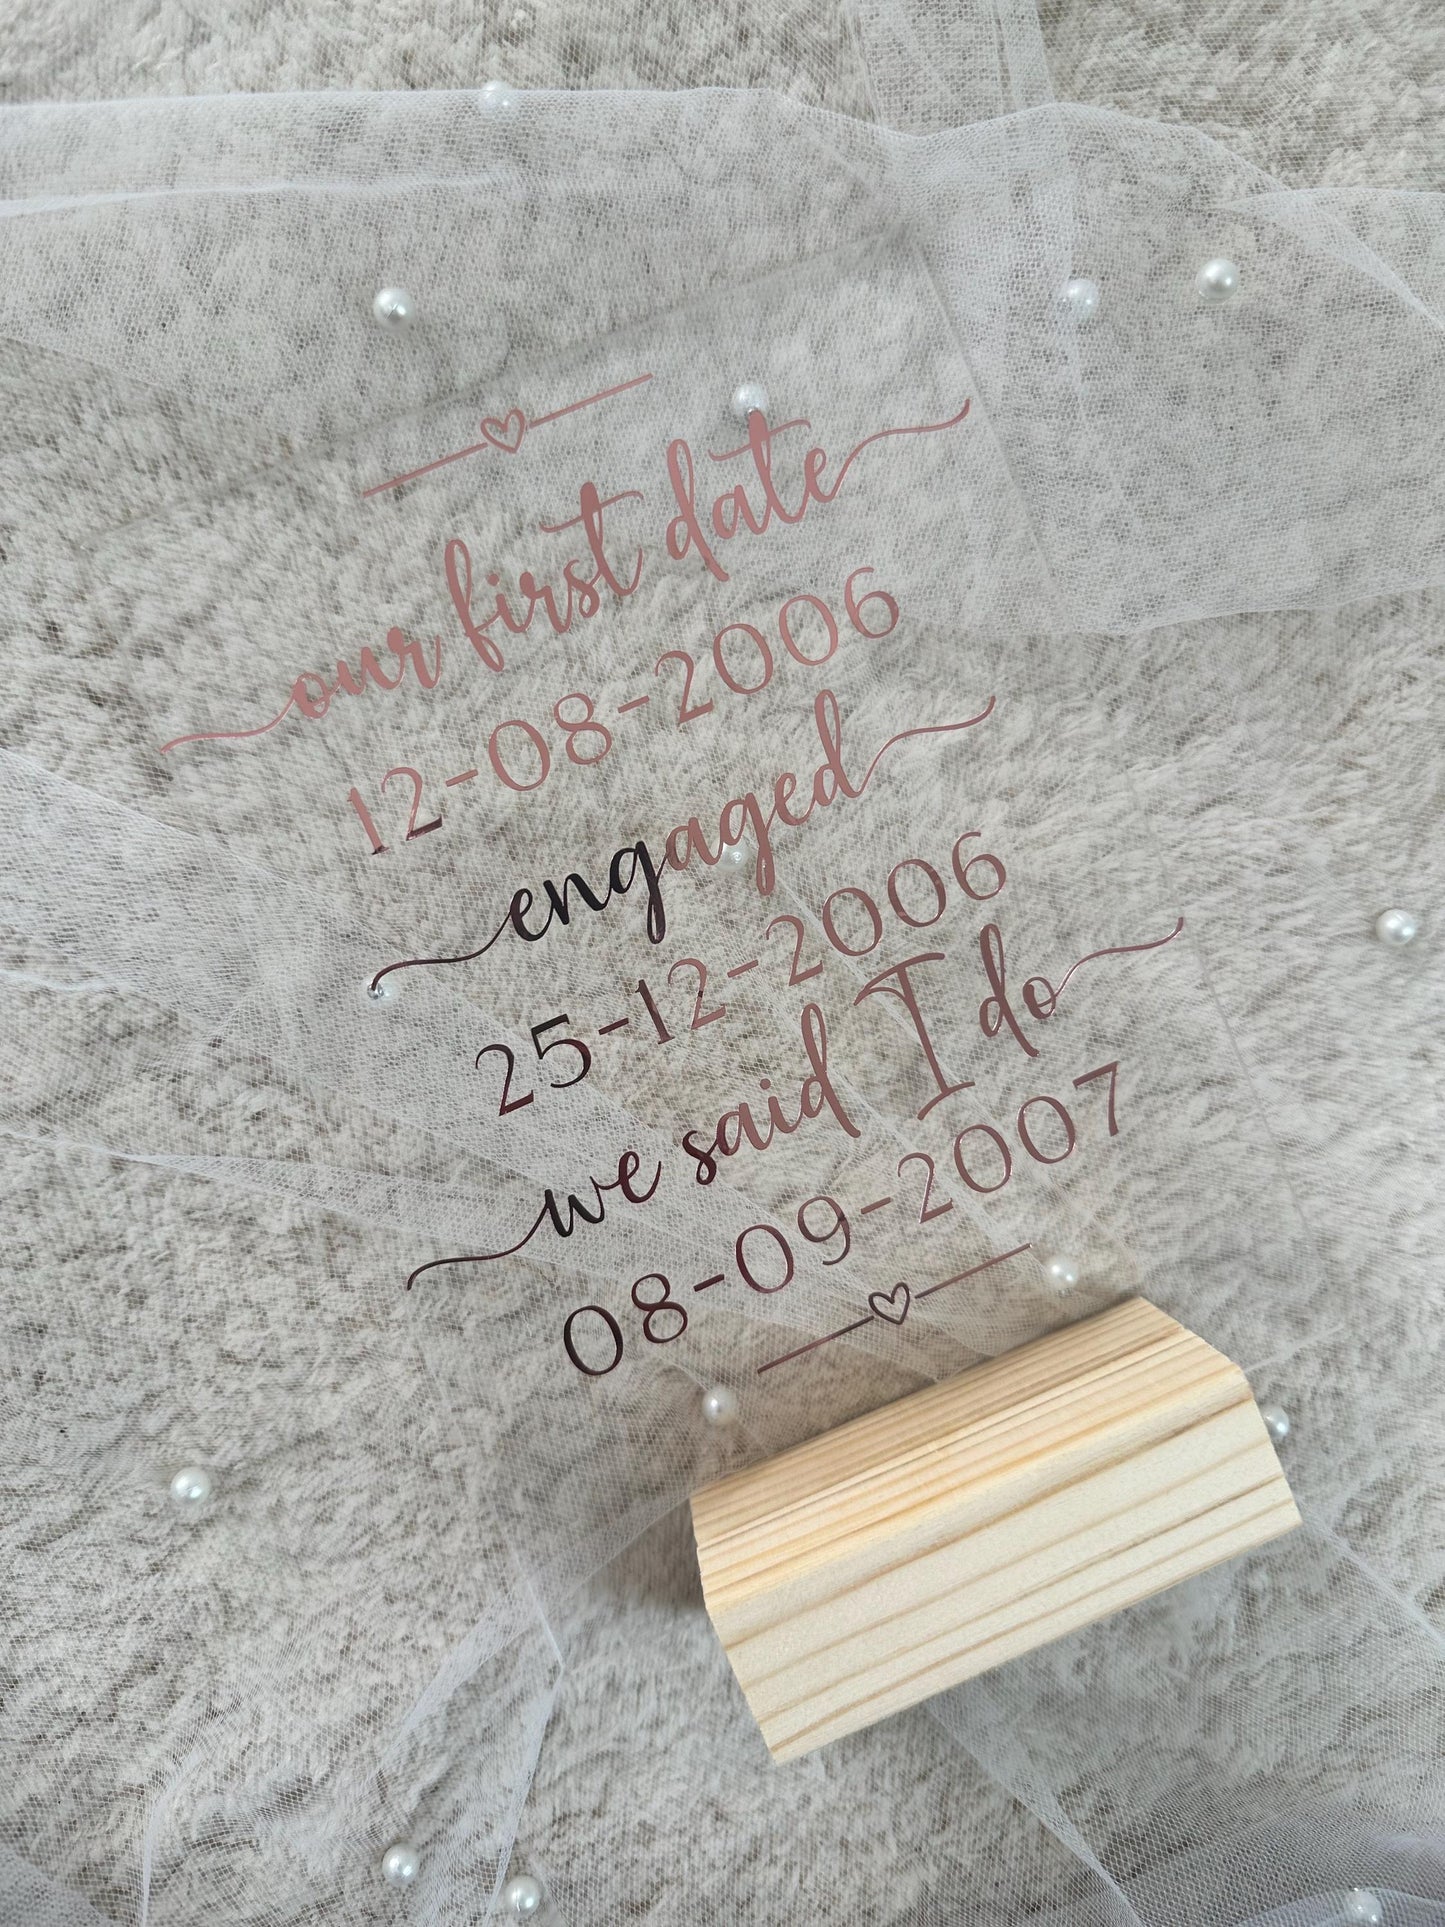 our first date
12-08-2006
engaged
25-12-2006
we said I do
08-09-2007